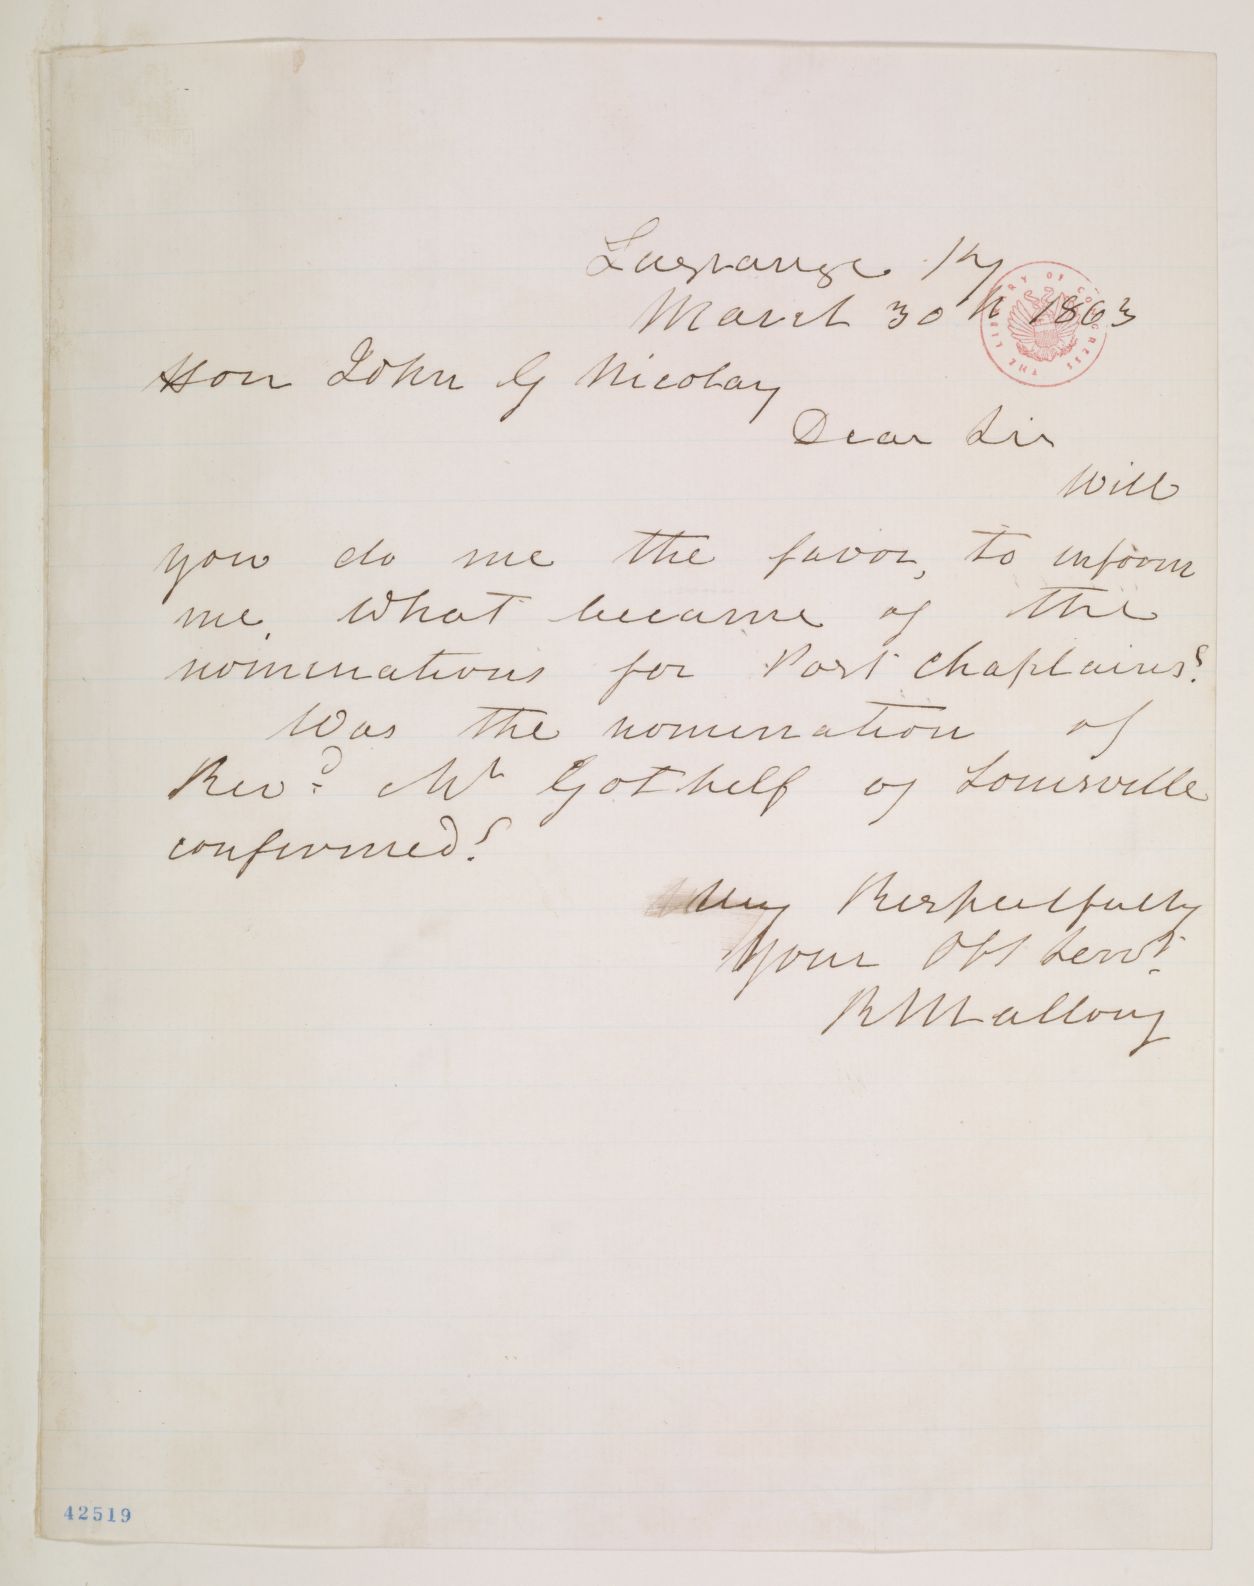 Lagrange Ky
March 30th 1863
Hon John G Nicolay
Dear Sir
Will
you do me the favor, to inform
me, what became of the
nominations for Post chaplains?
Was the nomination of
Revd Mr Gothelf of Louisville
confirmed?
Very Respectfully
Your Obt Servt
R Mallory
THE LIBRARY OF CONGRESS
42519